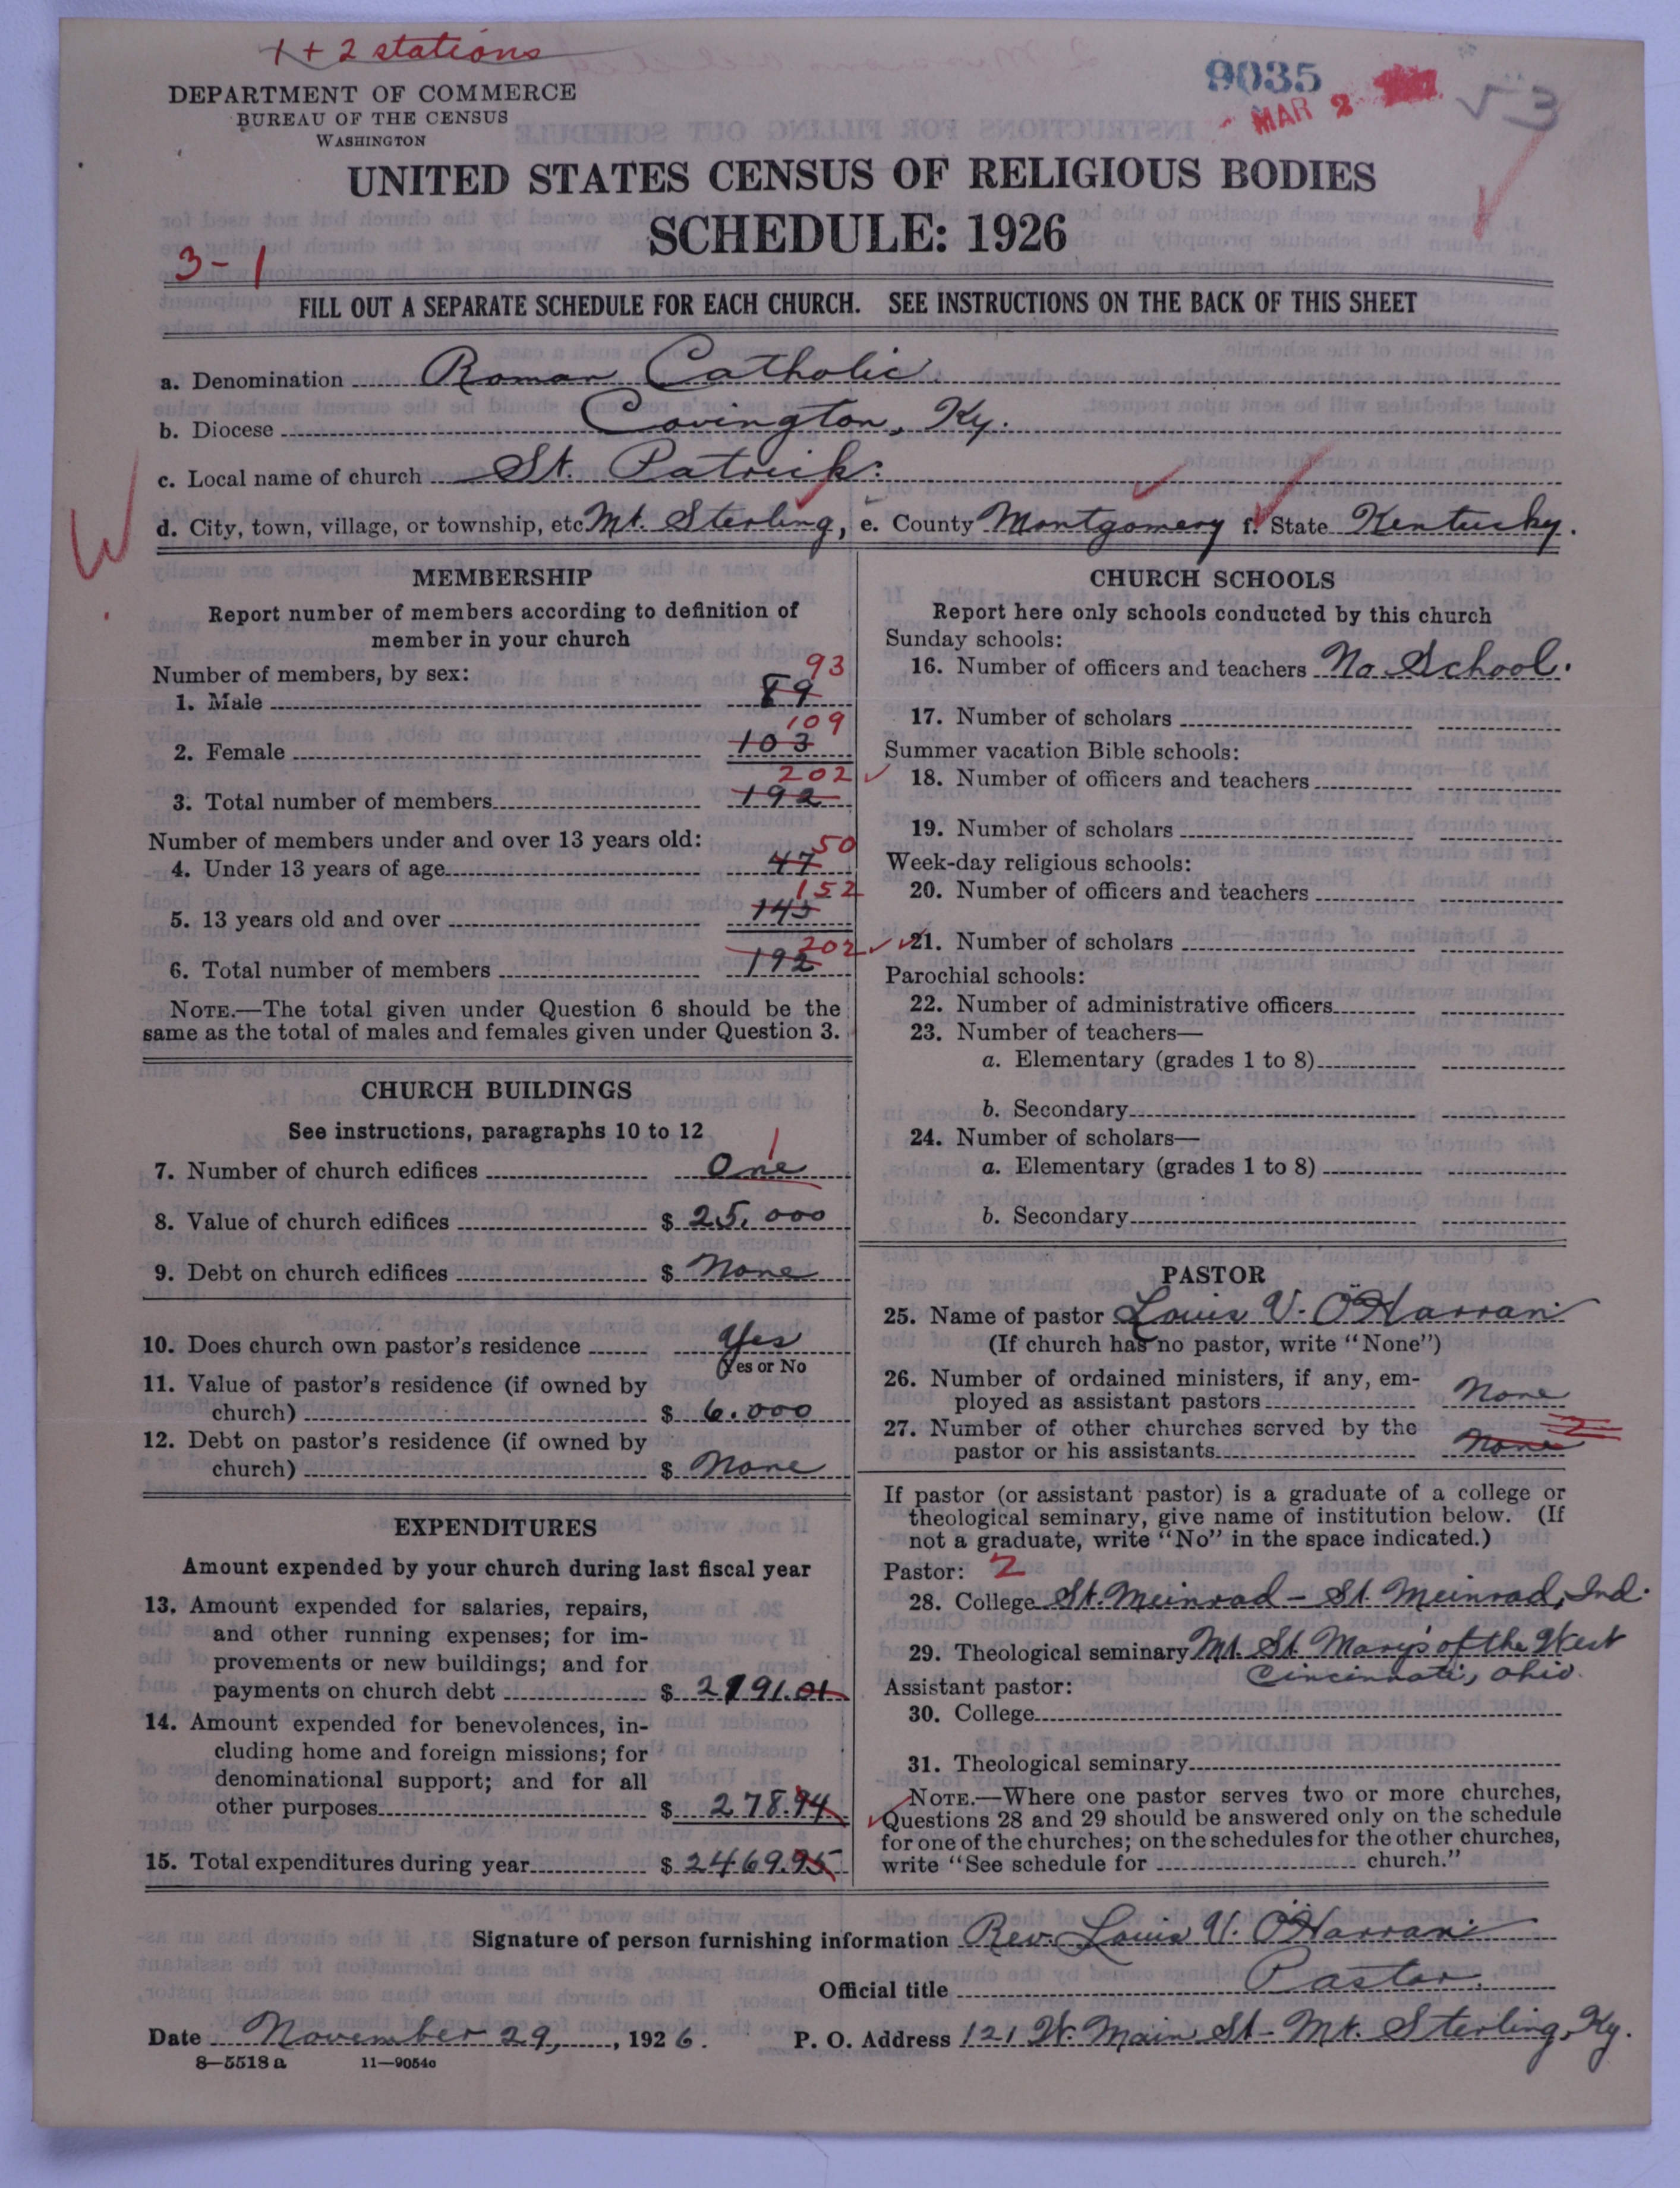 1 + 2 stations
9035
MAR 2
3
DEPARTMENT OF COMMERCE
BUREAU OF THE CENSUS
WASHINGTON
UNITED STATES CENSUS OF RELIGIOUS BODIES
SCHEDULE: 1926
3-1
FILL OUT A SEPARATE SCHEDULE FOR EACH CHURCH. SEE INSTRUCTIONS ON THE BACK OF THIS SHEET
a. Denomination Roman Catholic
b. Diocese Covington, Ky.
c. Local name of church St. Patrick:
d. City, town, village, or township, etc Mt. Sterling, e. County Montgomery f. State Kentucky.
MEMBERSHIP
Report number of members according to definition of
member in your church
Number of members, by sex:
93
1. Male 89
109
2. Female 103
202
3. Total number of members 192
Number of members under and over 13 years old:
50
4. Under 13 years of age 47
152
5. 13 years old and over 145
202
6. Total number of members 192
NOTE.—The total given under Question 6 should be the
same as the total of males and females given under Question 3.
CHURCH BUILDINGS
See instructions, paragraphs 10 to 12
1
7. Number of church edifices One
8. Value of church edifices $ 25,000
9. Debt on church edifices $ None
10. Does church own pastor's residence Yes
(Yes or No
11. Value of pastor's residence (if owned by
church) $ 6.000
12. Debt on pastor's residence (if owned by
church) $ None
EXPENDITURES
Amount expended by your church during last fiscal year
13. Amount expended for salaries, repairs,
and other running expenses; for im-
provements or new buildings; and for
payments on church debt $ 2191.01
14. Amount expended for benevolences, in-
cluding home and foreign missions; for
denominational support; and for all
other purposes $ 278.94
15. Total expenditures during year $ 2469.95
CHURCH SCHOOLS
Report here only schools conducted by this church
Sunday schools:
16. Number of officers and teachers No School.
17. Number of scholars
Summer vacation Bible schools:
18. Number of officers and teachers
19. Number of scholars
Week-day religious schools:
20. Number of officers and teachers
21. Number of scholars
Parochial schools:
22. Number of administrative officers
23. Number of teachers—
a. Elementary (grades 1 to 8)
b. Secondary
24. Number of scholars—
a. Elementary (grades 1 to 8)
b. Secondary
PASTOR
25. Name of pastor Louis V. O'Harran
(If church has no pastor, write "None")
26. Number of ordained ministers, if any, em-
ployed as assistant pastors None
27. Number of other churches served by the 2
pastor or his assistants None
If pastor (or assistant pastor) is a graduate of a college or
theological seminary, give name of institution below. (If
not a graduate, write "No" in the space indicated.)
Pastor: 2
28. College St. Meinrad - St. Meinrad, Ind.
29. Theological seminary Mt. St. Mary's of the West
Cincinnati, Ohio.
Assistant pastor:
30. College
31. Theological seminary
NOTE.—Where one pastor serves two or more churches,
Questions 28 and 29 should be answered only on the schedule
for one of the churches; on the schedules for the other churches,
write "See schedule for church."
Signature of person furnishing information Rev. Louis V. O'Harran
Official title Pastor.
Date November 29, 1926. P. O. Address 121 W. Main St - Mt. Sterling, Ky.
8—5518 a 11—9054c